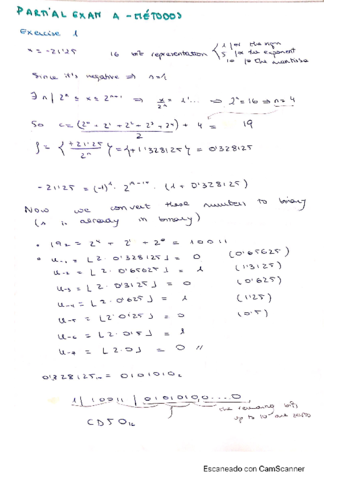 PARTIAL EXAM A - MÉTODOS
Exercise 1
x = -21'25 16 bit representation { 1 for the sign
5 for the exponent
10 for the mantissa
Since it's negative ⇒ s=1
∃ n | 2ⁿ ≤ x ≤ 2ⁿ⁺¹ ⇒ x/2ⁿ = 1'... ⇒ 2ⁿ = 16 ⇒ n = 4
So c = (2⁰ + 2¹ + 2² + 2³ + 2⁴)/2 + 4 = 19
f = { +21'25 / 2ⁿ } = {+1'328125} = 0'328125
-21'25 = (-1)¹ · 2 · (1 + 0'328125)
Now we convert these numbers to binary
(1 is already in binary)
• 19 = 2⁴ + 2¹ + 2⁰ = 10011
• u₋₁ = ⌊2·0'328125⌋ = 0 (0'65625)
u₋₂ = ⌊2·0'65625⌋ = 1 (1'3125)
u₋₃ = ⌊2·0'3125⌋ = 0 (0'625)
u₋₄ = ⌊2·0'625⌋ = 1 (1'25)
u₋₅ = ⌊2·0'25⌋ = 0 (0.5)
u₋₆ = ⌊2·0'5⌋ = 1
u₋₇ = ⌊2·0⌋ = 0 //
0'328125₁₀ = 0101010₂
1 | 10011 | 01010100...0
the remaining bits
up to 10 are zeros
CD50₁₆
Escaneado con CamScanner